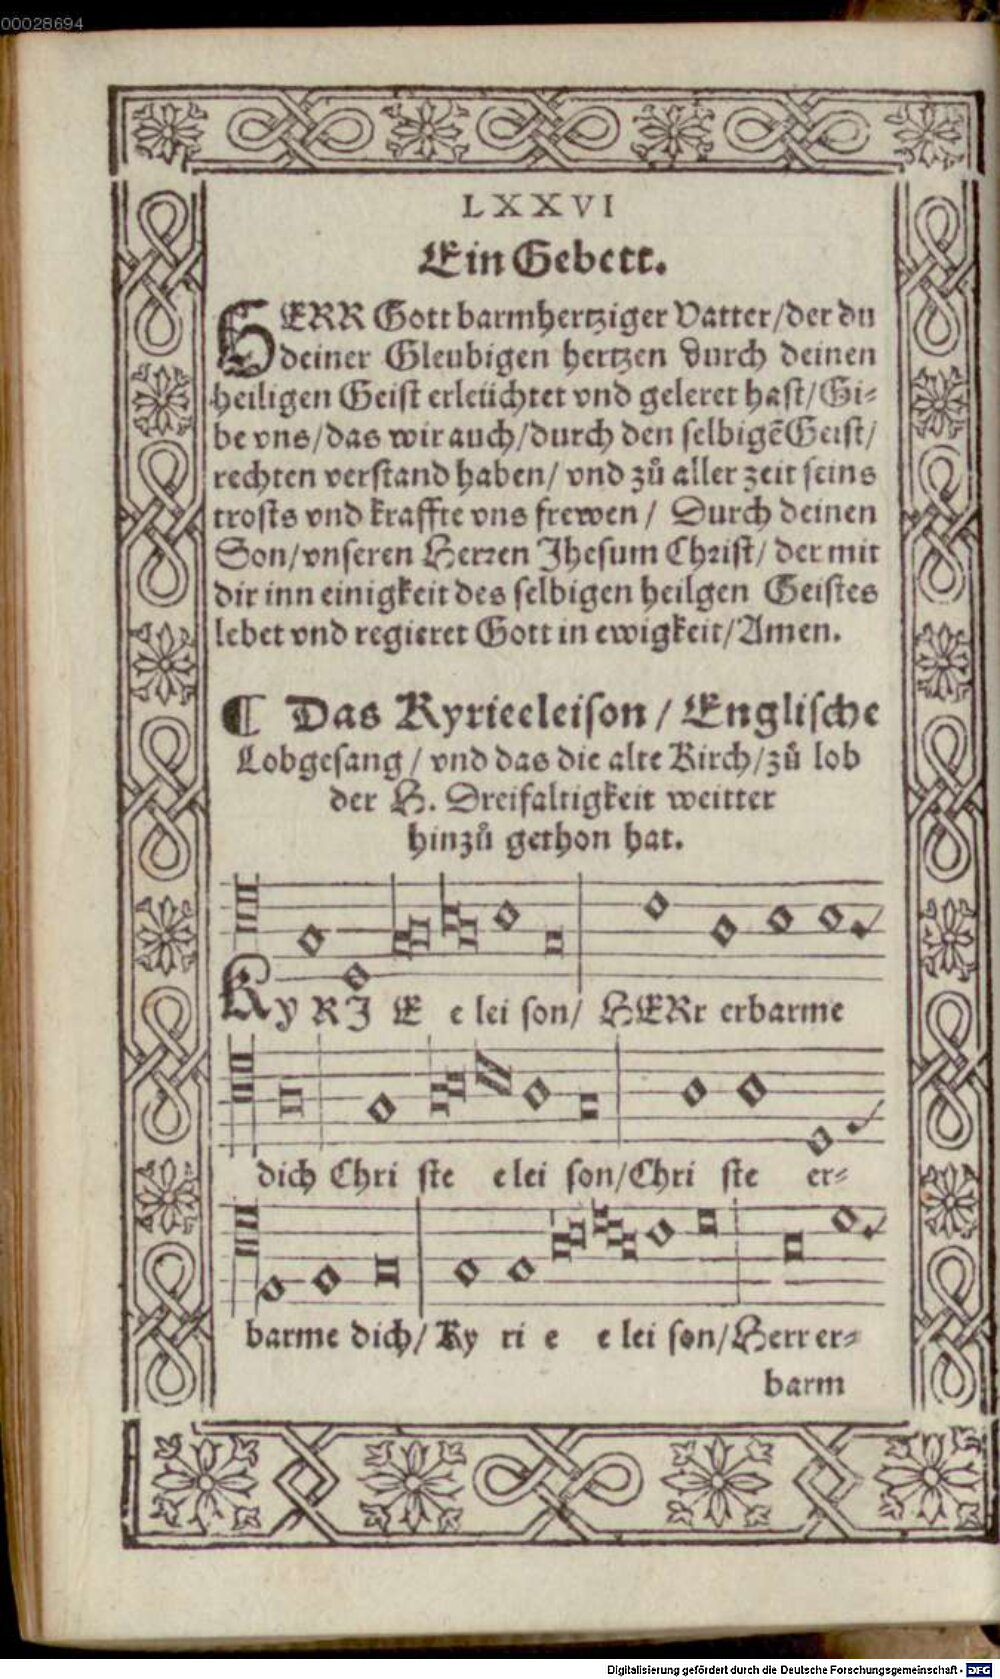 00028694
LXXVI
Ein Gebett.
HERR Gott barmhertziger Vatter/der du
deiner Gleubigen hertzen durch deinen
heiligen Geist erleüchtet vnd geleret hast/Gi⸗
be vns/das wir auch/durch den selbigẽ Geist/
rechten verstand haben/ vnd zů aller zeit seins
trosts vnd kraffte vns frewen / Durch deinen
Son/vnseren Herren Jhesum Christ/ der mit
dir inn einigkeit des selbigen heilgen Geistes
lebet vnd regieret Gott in ewigkeit/Amen.
¶ Das Kyrieeleison / Englische
Lobgesang / vnd das die alte Kirch/zů lob
der H. Dreifaltigkeit weitter
hinzů gethon hat.
Ky RJ E e lei son/ HERr erbarme
dich Chri ste e lei son/Chri ste er⸗
barme dich/ Ky ri e e lei son/Herr er⸗
barm
Digitalisierung gefördert durch die Deutsche Forschungsgemeinschaft - DFG